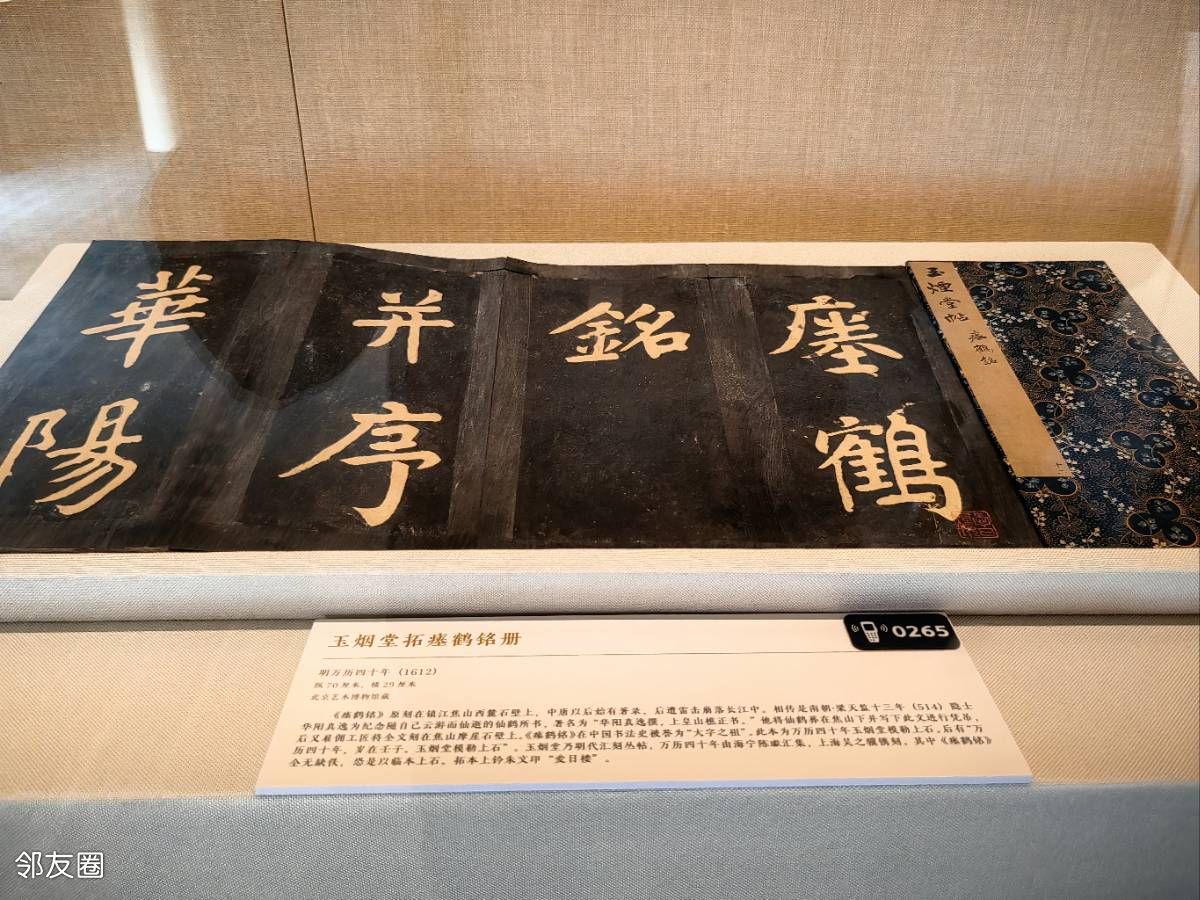 瘞鶴
銘
并序
華陽
玉煙堂帖 瘞鶴銘
玉烟堂拓瘗鹤铭册
0265
明万历四十年（1612）
纵70厘米，横29厘米
北京艺术博物馆藏
《瘗鹤铭》原刻在镇江焦山西麓石壁上，中唐以后始有著录，后遭雷击崩落长江中。相传是南朝·梁天监十三年（514）隐士
华阳真逸为纪念随自己云游而仙逝的仙鹤所书，署名为“华阳真逸撰，上皇山樵正书。”他将仙鹤葬在焦山下并写下此文进行凭吊，
后又雇佣工匠将全文刻在焦山摩崖石壁上。《瘗鹤铭》在中国书法史被誉为“大字之祖”。此本为万历四十年玉烟堂模勒上石，后有“万
历四十年，岁在壬子。玉烟堂模勒上石”。玉烟堂乃明代汇刻丛帖，万历四十年由海宁陈瓛汇集，上海吴之骥镌刻，其中《瘗鹤铭》
全无缺佚，恐是以临本上石。拓本上钤朱文印“爱日楼”。
邻友圈